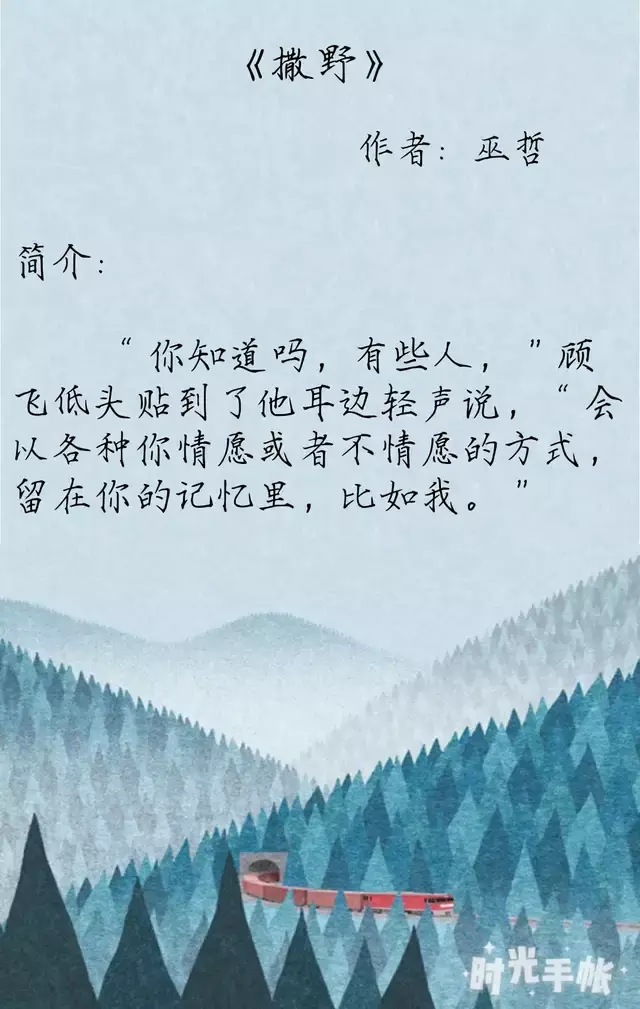 《撒野》
作者：巫哲
简介：
“你知道吗，有些人，”顾
飞低头贴到了他耳边轻声说，“会
以各种你情愿或者不情愿的方式，
留在你的记忆里，比如我。”
时光手帐